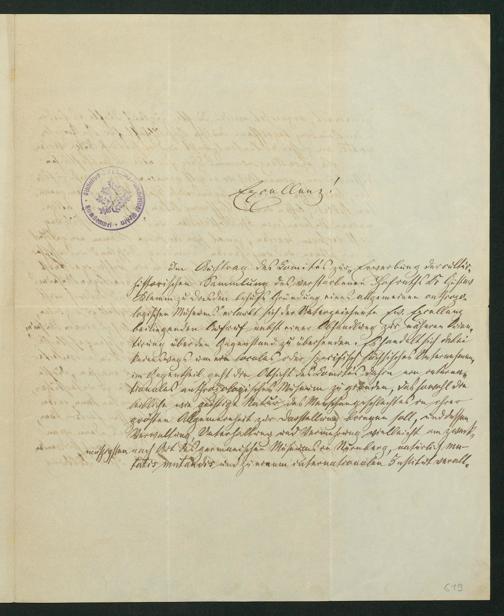 Excellenz!
Im Auftrag des Comités zur Erwerbung der cultur-
historischen Sammlung des verstorbenen Hofraths Dr. Gustav
Klemm zu Dresden behufs Gründung eines allgemeinen anthropo-
logischen Museums erlaubt sich der Unterzeichnete Ew. Excellenz
beiliegenden Aufruf nebst einer Abhandlung zur näheren Orien-
tirung über den Gegenstand zu übersenden. Es handelt sich dabei
keineswegs um ein locales oder specifisch sächsisches Unternehmen,
im Gegentheil geht die Absicht des Comités dahin ein internatio-
tionales anthropologisches Museum zu gründen, das sowohl die
leibliche wie geistige Natur des Menschengeschlechtes in ihrer
größten Allgemeinheit zur Darstellung bringen soll, und dessen
Verwaltung, Unterhaltung und Vermehrung vielleicht am zweck-
mäßigsten nach Art des germanischen Museums in Nürnberg, natürlich mu-
tatis mutandis, und zu einem internationalen Institut verall-
619